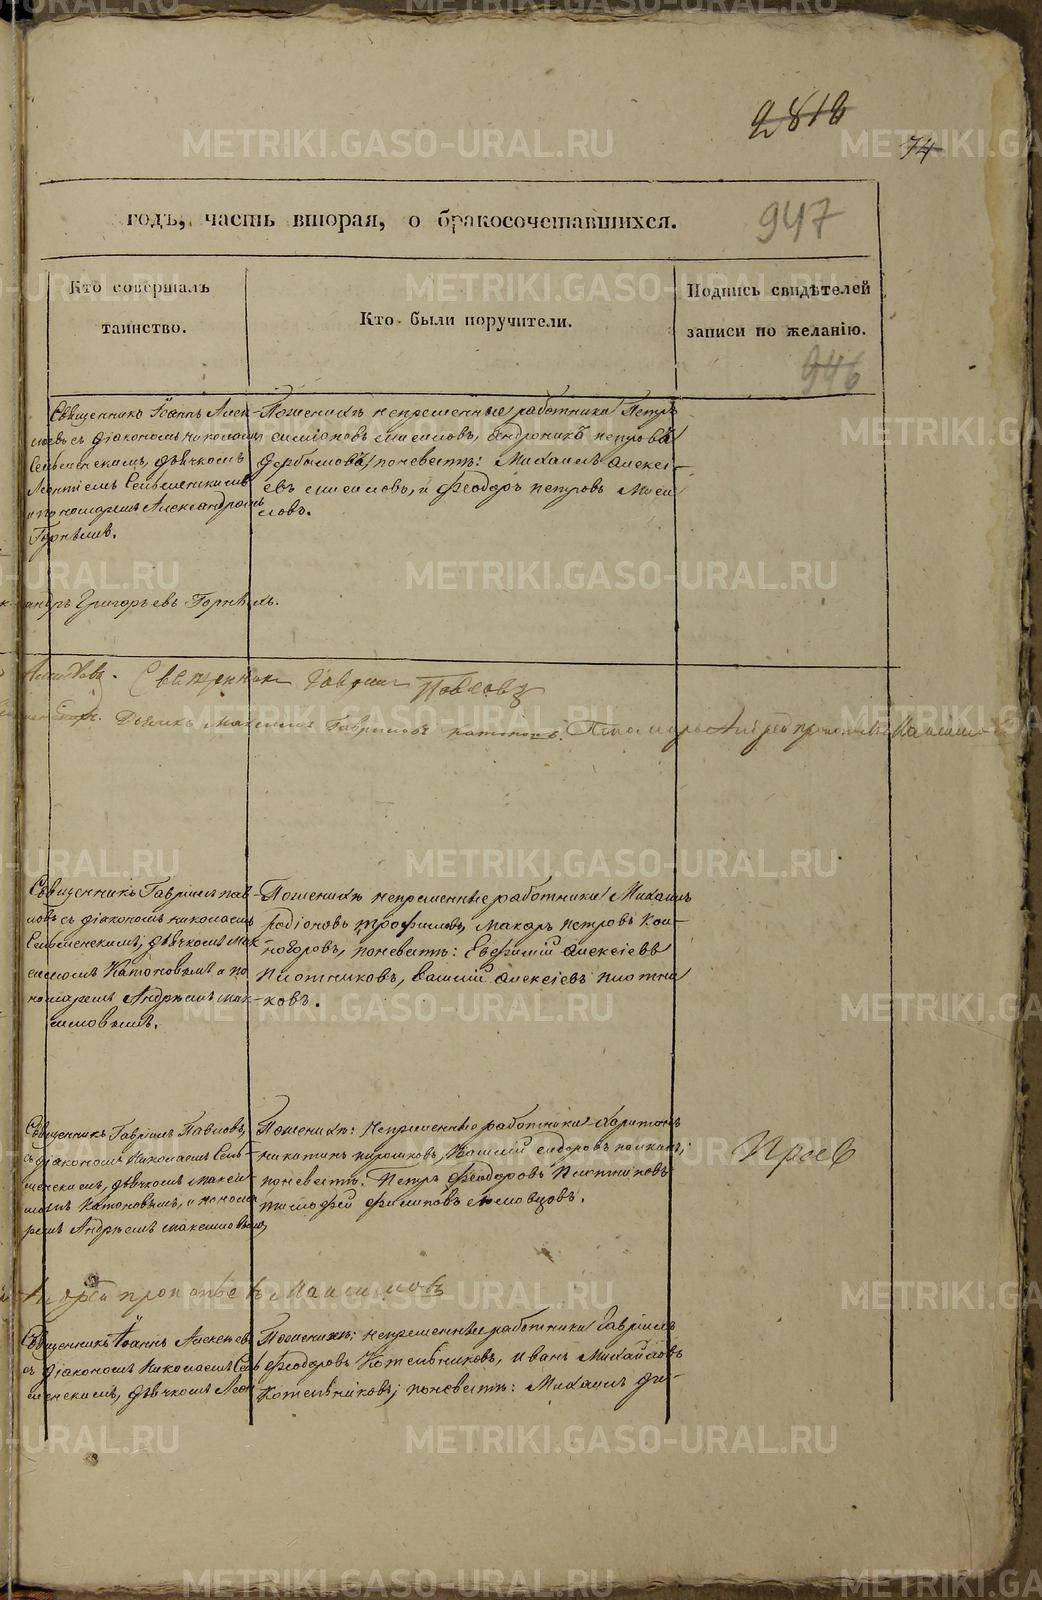 2810
74
годъ, часть вторая, о бракосочетавшихся.
947
Кто совершалъ
таинство.
Кто были поручители.
Подпись свидѣтелей
записи по желанію.
946
Священникъ Іоаннъ Алек-
съ діакономъ Николаемъ
Сельменскимъ, дьячкомъ
Леонтіемъ Сельменскимъ
и пономаремъ Александромъ
Горнѣмъ.
По женихѣ непременные работники Петръ
Симіоновъ, Андроникъ Петровъ
по невестѣ: Михаилъ Алексі-
евъ, и Феодоръ Петровъ
ловъ.
андръ Григорьевъ Горныхъ.
Священникъ Гавриилъ Павловъ
Дьячекъ Максимъ Гавриловъ Катоновъ. Пономарь Андрей Прокопьевъ Максимовъ
Священникъ Гавріилъ Пав-
ловъ съ діакономъ Николаемъ
Сельменскимъ, дьячкомъ Мак-
симомъ Катоновымъ и по
номаремъ Андреемъ Мак-
симовымъ.
По женихѣ непременные работники Михаилъ
Родіоновъ Трофимовъ, Макаръ Петровъ Кон-
ногоровъ, по невестѣ: Евфимій Алексіевъ
Плотниковъ, Василій Алексіевъ Плотни
ковъ.
Священникъ Гавріилъ Павловъ
съ діакономъ Николаемъ Сель-
менскимъ, дьячкомъ Макси-
момъ Катоновымъ, и понома
ремъ Андреемъ Максимовымъ
По женихѣ: Непременные работники Харитонъ
Никитинъ, Василій Сидоровъ;
по невестѣ. Петръ Феодоровъ Плотниковъ
Тимофей Филиповъ
Андрей Прокопьевъ Максимовъ
Священникъ Іоаннъ Алексеевъ
съ діакономъ Николаемъ Сель
менскимъ, дьячкомъ Леон
По женихѣ: непременные работники Гавріилъ
Феодоровъ Котельниковъ, Иванъ Михайловъ
Котельниковъ; по невестѣ: Михаилъ
METRIKI.GASO-URAL.RU